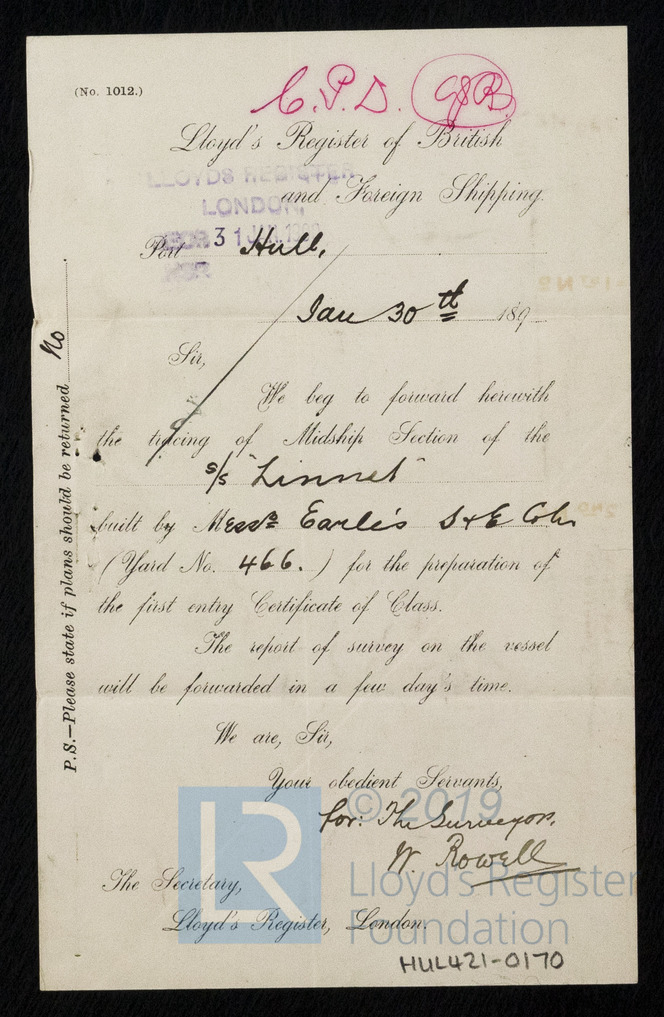 (No. 1012.)
C.P.D.
Lloyd's Register of British
and Foreign Shipping.
LLOYDS REGISTER
LONDON,
31
Port Hull,
Jan 30th 189
Sir,
We beg to forward herewith
the tracing of Midship Section of the
s/s "Linnet"
built by Messrs Earle's S & E Co
(Yard No. 466.) for the preparation of
the first entry Certificate of Class.
The report of survey on the vessel
will be forwarded in a few day's time.
We are, Sir,
Your obedient Servants,
for: The Surveyors.
W. Rowell
The Secretary,
Lloyd's Register, London.
P.S.—Please state if plans should be returned No
© 2019
LR
Lloyd's Register
Foundation
HUL421-0170